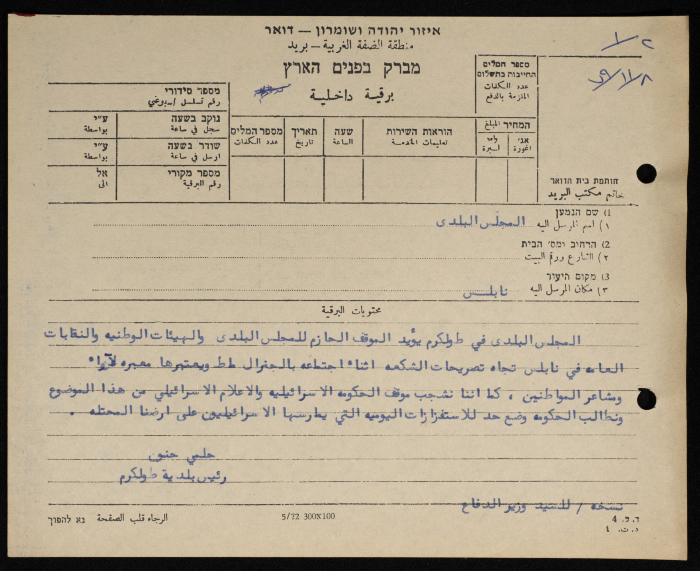 איזור יהודה ושומרון – דואר
منطقة الضفة الغربية – بريد
מברק בפנים הארץ
برقية داخلية
מספר המלים החייבות בתשלום
عدد الكلمات الملزمة بالدفع
המחיר المبلغ
אג' اغورة
ל"י ليرة
הוראות השירות
تعليمات الخدمة
שעה
الساعة
תאריך
تاريخ
מספר המלים
عدد الكلمات
מספר סידורי
رقم تسلسل
נוקב בשעה
سجل في ساعة
ע"י
بواسطة
שודר בשעה
ارسل في ساعة
ע"י
بواسطة
מספר מקורי
رقم البرقية
אל
الى
חותמת בית הדואר
خاتم مكتب البريد
1) שם הנמען
١) اسم المرسل اليه المجلس البلدي
2) הרחוב ומס' הבית
٢) الشارع ورقم البيت
3) מקום היעוד
٣) مكان المرسل اليه نابلس
محتويات البرقية
المجلس البلدي في طولكرم يؤيد الموقف الحازم للمجلس البلدي والهيئات الوطنيه والنقابات
العامه في نابلس تجاه تصريحات الشكعه اثناء اجتماعه بالجنرال مط ويعتبرها معبره لآراء
ومشاعر المواطنين ، كما اننا نشجب موقف الحكومه الاسرائيليه والاعلام الاسرائيلي من هذا الموضوع
ونطالب الحكومه وضع حد للاستفزازات اليوميه التي يمارسها الاسرائيليون على ارضنا المحتله .
حلمي حنون
رئيس بلدية طولكرم
نسخه / للسيد وزير الدفاع
الرجاء قلب الصفحة נא להפוך
5/72 300X100
ד.ל. 4
د.ت. ٤